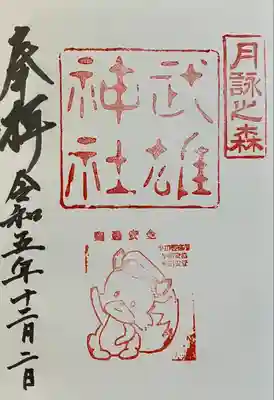 月詠之森
武雄
神社
奉拝 令和五年十二月二日